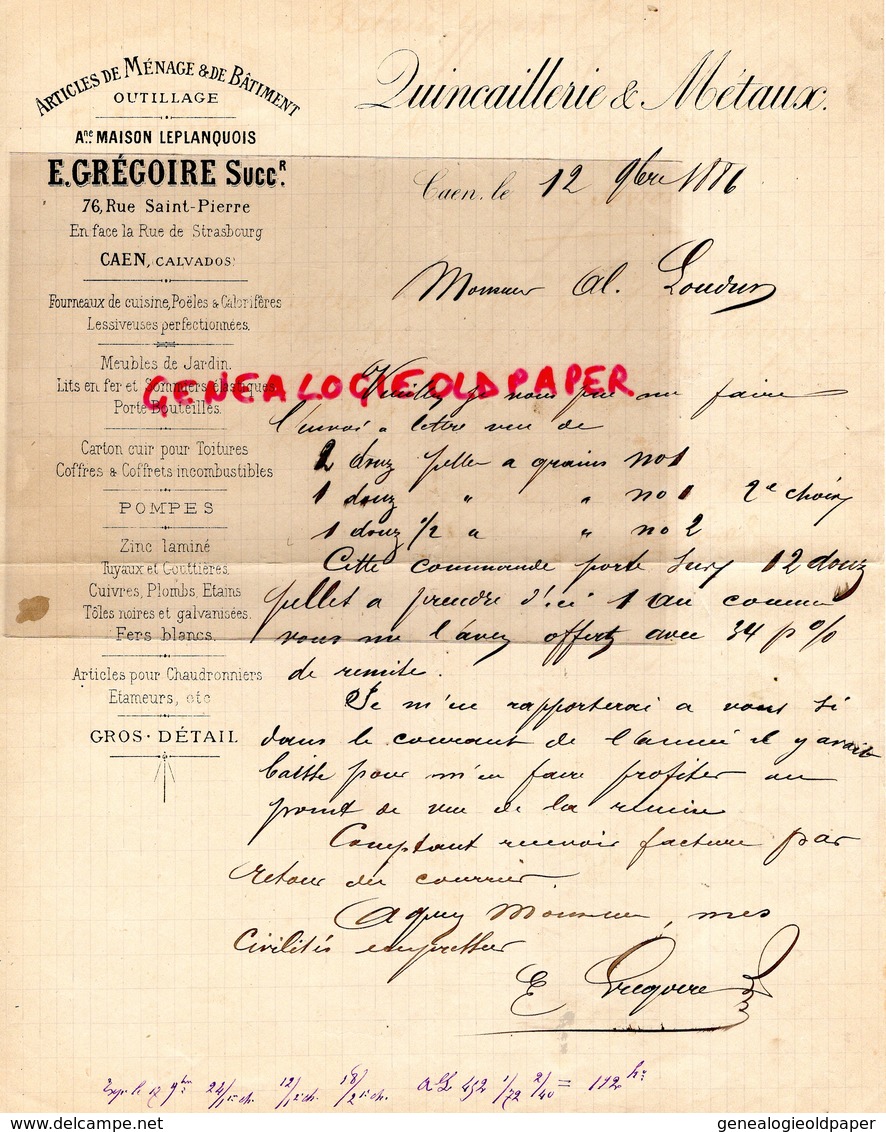 ARTICLES DE MÉNAGE & DE BÂTIMENT
OUTILLAGE
Ane MAISON LEPLANQUOIS
E. GRÉGOIRE SUCCR.
76, Rue Saint-Pierre
En face la Rue de Strasbourg
CAEN, (CALVADOS)
Fourneaux de cuisine, Poëles & Calorifères
Lessiveuses perfectionnées.
Meubles de Jardin.
Lits en fer et Sommiers élastiques
Porte Bouteilles.
Carton cuir pour Toitures
Coffres & Coffrets incombustibles
POMPES
Zinc laminé
Tuyaux et Gouttières,
Cuivres, Plombs, Etains
Tôles noires et galvanisées.
Fers blancs.
Articles pour Chaudronniers
Etameurs, etc
GROS - DÉTAIL
Quincaillerie & Métaux.
Caen, le 12 9bre 1886
Monsieur Al. Loudun
GENEALOGIEOLDPAPER
Veuillez je vous prie me faire
l'envoi a lettre vue de
2 douz pelles a grains no 1
1 douz " " no 1 2e choix
1 douz 1/2 " " no 2
Cette commande porte sur 12 douz
pelles a prendre d'ici 1 an comme
vous me l'avez offert avec 34 p %
de remise.
Je m'en rapporterai a vous si
dans le courant de l'année il y avait
baisse pour m'en faire profiter au
point de vue de la remise
Comptant recevoir facture par
retour du courrier
Agréez Monsieur, mes
civilités empressées
E Gregoire
Exp. le 17 9bre 24/1er ch. 12/1er ch. 18/2e ch. 1/72 2/40 =
genealogieoldpaper